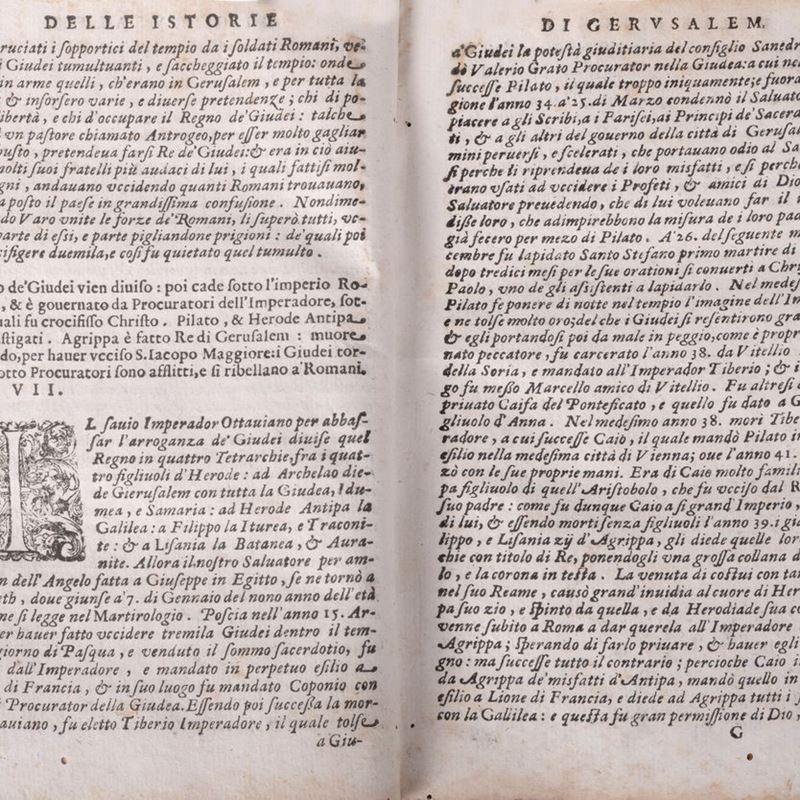 DELLE ISTORIE
ruciati i ſopportici del tempio da i ſoldati Romani, ve-
i Giudei tumultuanti, e ſaccheggiato il tempio: onde
in arme quelli, ch'erano in Geruſalem, e per tutta la
& inſorſero varie, e diuerſe pretendenze; chi di po-
ibertà, e chi d'occupare il Regno de'Giudei: talche
vn paſtore chiamato Antrogeo, per eſſer molto gagliar
buſto, pretendeua farſi Re de'Giudei: & era in ciò aiu-
molti ſuoi fratelli più audaci di lui, i quali fattiſi mol-
gni, andauano vccidendo quanti Romani trouauano,
a poſto il paeſe in grandiſſima confuſione. Nondime-
do Varo vnite le forze de'Romani, li ſuperò tutti, vc-
parte di eſſi, e parte pigliandone prigioni: de'quali poi
cifigere duemila, e coſi fu quietato quel tumulto.
o de'Giudei vien diuiſo: poi cade ſotto l'imperio Ro-
, & è gouernato da Procuratori dell'Imperadore, ſot-
uali fu crocifiſſo Chriſto. Pilato, & Herode Antipa
aſtigati. Agrippa è fatto Re di Geruſalem: muore
do, per hauer vcciſo S. Iacopo Maggiore: i Giudei tor-
otto Procuratori ſono afflitti, e ſi ribellano a'Romani.
VII.
IL ſauio Imperador Ottauiano per abbaſ-
ſar l'arroganza de'Giudei diuiſe quel
Regno in quattro Tetrarchie, fra i quat-
tro figliuoli d'Herode: ad Archelao die-
de Gieruſalem con tutta la Giudea, Idu-
mea, e Samaria: ad Herode Antipa la
Galilea: a Filippo la Iturea, e Traconi-
te: & a Liſania la Batanea, & Aura-
nite. Allora il noſtro Saluatore per am-
n dell'Angelo fatta a Giuſeppe in Egitto, ſe ne tornò a
eth, doue giunſe a'7. di Gennaio del nono anno dell'età
me ſi legge nel Martirologio. Poſcia nell'anno 15. Ar-
er hauer fatto vccidere tremila Giudei dentro il tem-
giorno di Paſqua, e venduto il ſommo ſacerdotio, fu
dall'Imperadore, e mandato in perpetuo eſilio a
di Francia, & in ſuo luogo fu mandato Coponio con
i Procuratore della Giudea. Eſſendo poi ſucceſſa la mor-
tauiano, fu eletto Tiberio Imperadore, il quale tolſe
a Giu-
DI GERVSALEM.
a'Giudei la poteſtà giuditiaria del conſiglio Sanedr
do Valerio Grato Procurator nella Giudea: a cui nel
ſucceſſe Pilato, il quale troppo iniquamente, e fuora
gione l'anno 34. a'25. di Marzo condennò il Saluato
piacere a gli Scribi, a i Fariſei, ai Principi de'Sacera
ti, & a gli altri del gouerno della città di Geruſa
mini peruerſi, e ſcelerati, che portauano odio al Sa
ſi perche li riprendeua de i loro misfatti, e ſi perche
erano vſati ad vccidere i Profeti, & amici di Dio
Saluatore preuedendo, che di lui voleuano far il
diſſe loro, che adimpirebbono la miſura de i loro pad
già fecero per mezo di Pilato. A'26. del ſeguente m
cembre fu lapidato Santo Stefano primo martire di
dopo tredici meſi per le ſue orationi ſi conuerti a Chr
Paolo, vno de gli aſſiſtenti a lapidarlo. Nel medeſ
Pilato fe ponere di notte nel tempio l'imagine dell'Im
e ne tolſe molto oro; del che i Giudei ſi reſentirono gra
& egli portandoſi poi da male in peggio, come è propr
nato peccatore, fu carcerato l'anno 38. da Vitellio
della Soria, e mandato all'Imperador Tiberio; & i
go fu meſſo Marcello amico di Vitellio. Fu altreſi
priuato Caifa del Ponteficato, e quello fu dato a G
gliuolo d'Anna. Nel medeſimo anno 38. mori Tiber
radore, a cui ſucceſſe Caio, il quale mandò Pilato in
eſilio nella medeſima città di Vienna; oue l'anno 41.
zò con le ſue proprie mani. Era di Caio molto famili
pa figliuolo di quell'Ariſtobolo, che fu vcciſo dal R
ſuo padre: come fu dunque Caio aſſi grand'Imperio,
di lui, & eſſendo morti ſenza figliuoli l'anno 39. i già
lippo, e Liſania zij d'Agrippa, gli diede quelle lor
chie con titolo di Re, ponendogli vna groſſa collana d
lo, e la corona in teſta. La venuta di coſtui con tan
nel ſuo Reame, cauſò grand'inuidia al cuore di Her
pa ſuo zio, e ſpinto da quella, e da Herodiade ſua co
venne ſubito a Roma a dar querela all'Imperadore
Agrippa; ſperando di farlo priuare, & hauer egli
gno: ma ſucceſſe tutto il contrario; percioche Caio in
da Agrippa de'misfatti d'Antipa, mandò quello in
eſilio a Lione di Francia, e diede ad Agrippa tutti i ſ
con la Galilea: e queſta fu gran permiſſione di Dio,
G